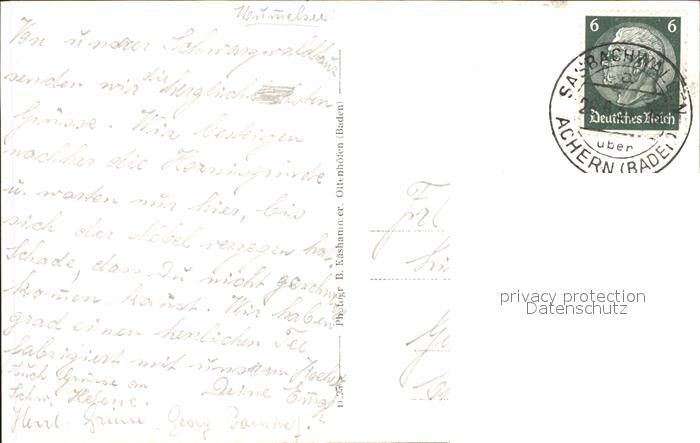 Mummelsee
Von unsrer Schwarzwaldtour
senden wir die herzlichsten
Grüsse. Wir besteigen
nachher die Hornisgrinde
u. warten nur hier, bis
sich der Nebel verzogen hat.
Schade, dass Du nicht geschwind
kommen kannst. Wir haben
grad einen herrlichen Tee
fabrigiert mit unserm Kocher
Auch Grüsse an
Schw. Helene. Deine
Herzl. Grüsse Georg
Photogr. B. Käshammer, Ottenhöfen (Baden)
6 6
Deutsches Reich
SASBACHWALDEN
über
ACHERN (BADEN)
Frl
privacy protection
Datenschutz